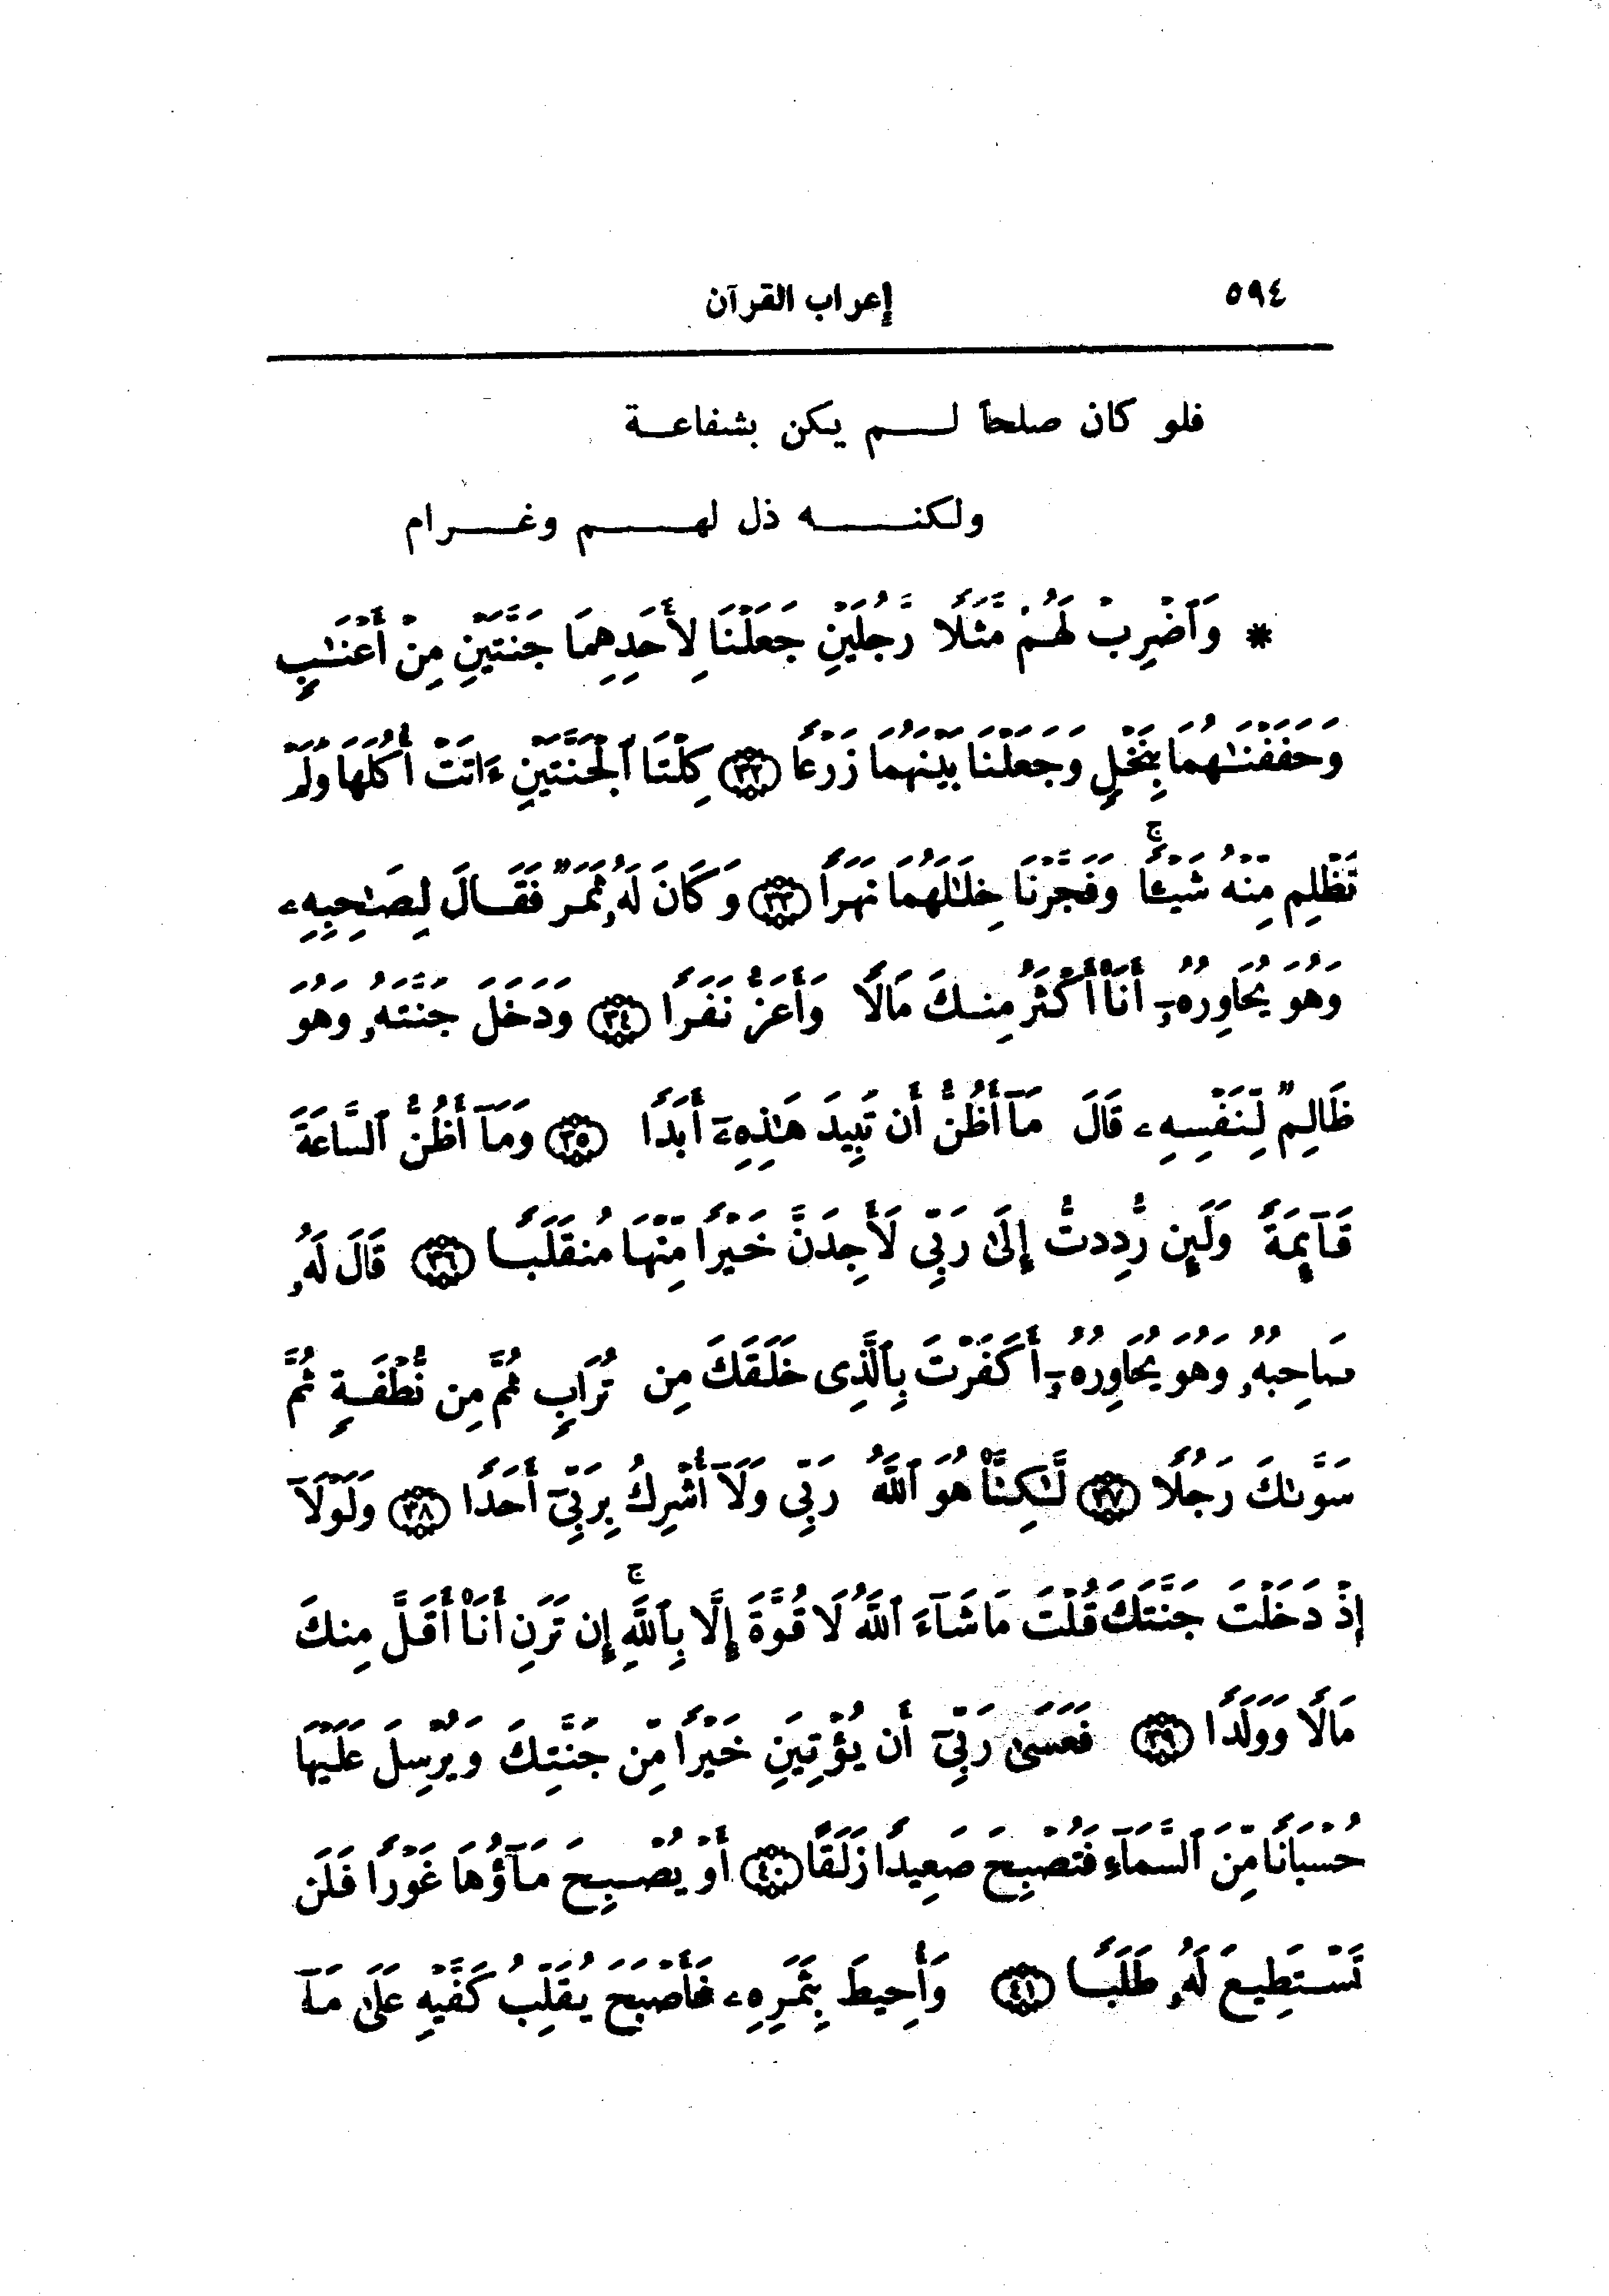 ٥٩٤
إعراب القرآن
فلو كان صلحاً لـم يكن بشفاعـة
ولكنـه ذل لهـم وغـرام
* وَٱضْرِبْ لَهُم مَّثَلًا رَّجُلَيْنِ جَعَلْنَا لِأَحَدِهِمَا جَنَّتَيْنِ مِنْ أَعْنَـٰبٍ
وَحَفَفْنَـٰهُمَا بِنَخْلٍ وَجَعَلْنَا بَيْنَهُمَا زَرْعًا ﴿٣٢﴾ كِلْتَا ٱلْجَنَّتَيْنِ ءَاتَتْ أُكُلَهَا وَلَمْ
تَظْلِم مِّنْهُ شَيْـًٔا ۚ وَفَجَّرْنَا خِلَـٰلَهُمَا نَهَرًا ﴿٣٣﴾ وَكَانَ لَهُۥ ثَمَرٌ فَقَالَ لِصَـٰحِبِهِۦ
وَهُوَ يُحَاوِرُهُۥٓ أَنَا۠ أَكْثَرُ مِنكَ مَالًا وَأَعَزُّ نَفَرًا ﴿٣٤﴾ وَدَخَلَ جَنَّتَهُۥ وَهُوَ
ظَالِمٌ لِّنَفْسِهِۦ قَالَ مَآ أَظُنُّ أَن تَبِيدَ هَـٰذِهِۦٓ أَبَدًا ﴿٣٥﴾ وَمَآ أَظُنُّ ٱلسَّاعَةَ
قَآئِمَةً وَلَئِن رُّدِدتُّ إِلَىٰ رَبِّى لَأَجِدَنَّ خَيْرًا مِّنْهَا مُنقَلَبًا ﴿٣٦﴾ قَالَ لَهُۥ
صَاحِبُهُۥ وَهُوَ يُحَاوِرُهُۥٓ أَكَفَرْتَ بِٱلَّذِى خَلَقَكَ مِن تُرَابٍ ثُمَّ مِن نُّطْفَةٍ ثُمَّ
سَوَّىٰكَ رَجُلًا ﴿٣٧﴾ لَّـٰكِنَّا۠ هُوَ ٱللَّهُ رَبِّى وَلَآ أُشْرِكُ بِرَبِّىٓ أَحَدًا ﴿٣٨﴾ وَلَوْلَآ
إِذْ دَخَلْتَ جَنَّتَكَ قُلْتَ مَا شَآءَ ٱللَّهُ لَا قُوَّةَ إِلَّا بِٱللَّهِ ۚ إِن تَرَنِ أَنَا۠ أَقَلَّ مِنكَ
مَالًا وَوَلَدًا ﴿٣٩﴾ فَعَسَىٰ رَبِّىٓ أَن يُؤْتِيَنِ خَيْرًا مِّن جَنَّتِكَ وَيُرْسِلَ عَلَيْهَا
حُسْبَانًا مِّنَ ٱلسَّمَآءِ فَتُصْبِحَ صَعِيدًا زَلَقًا ﴿٤٠﴾ أَوْ يُصْبِحَ مَآؤُهَا غَوْرًا فَلَن
تَسْتَطِيعَ لَهُۥ طَلَبًا ﴿٤١﴾ وَأُحِيطَ بِثَمَرِهِۦ فَأَصْبَحَ يُقَلِّبُ كَفَّيْهِ عَلَىٰ مَآ